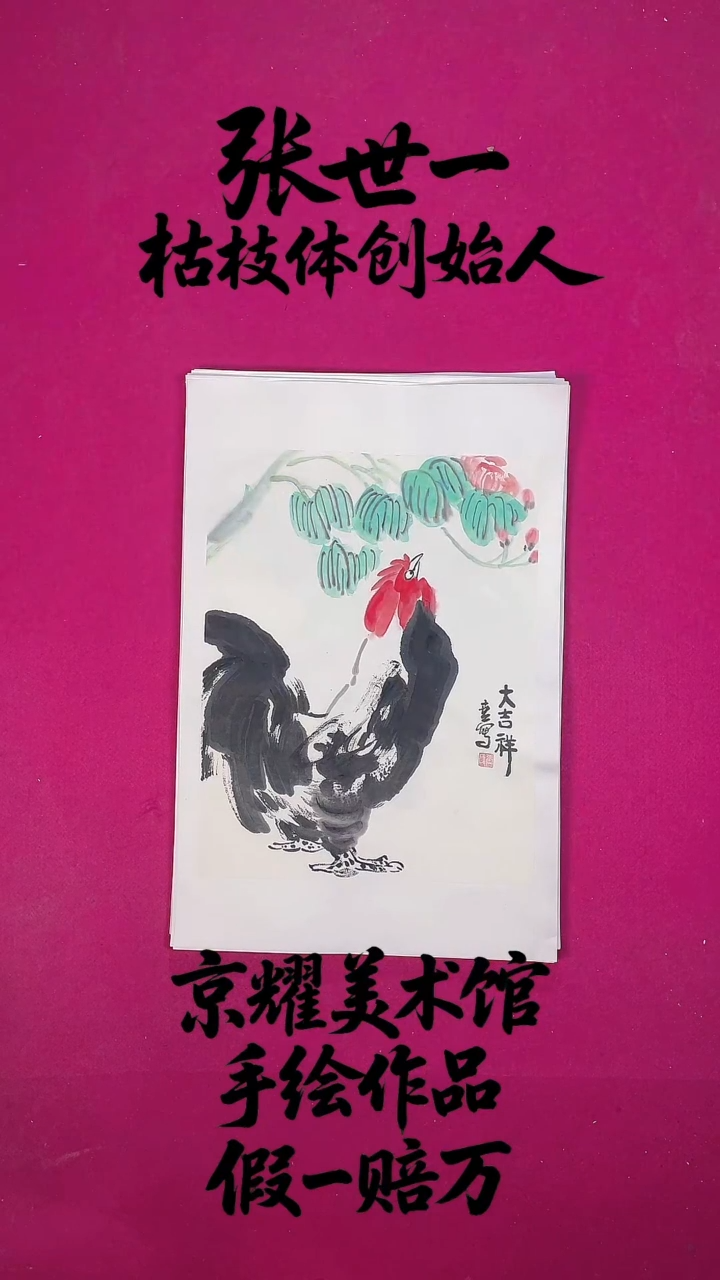 张世一
枯枝体创始人
大吉祥
京耀美术馆
手绘作品
假一赔万